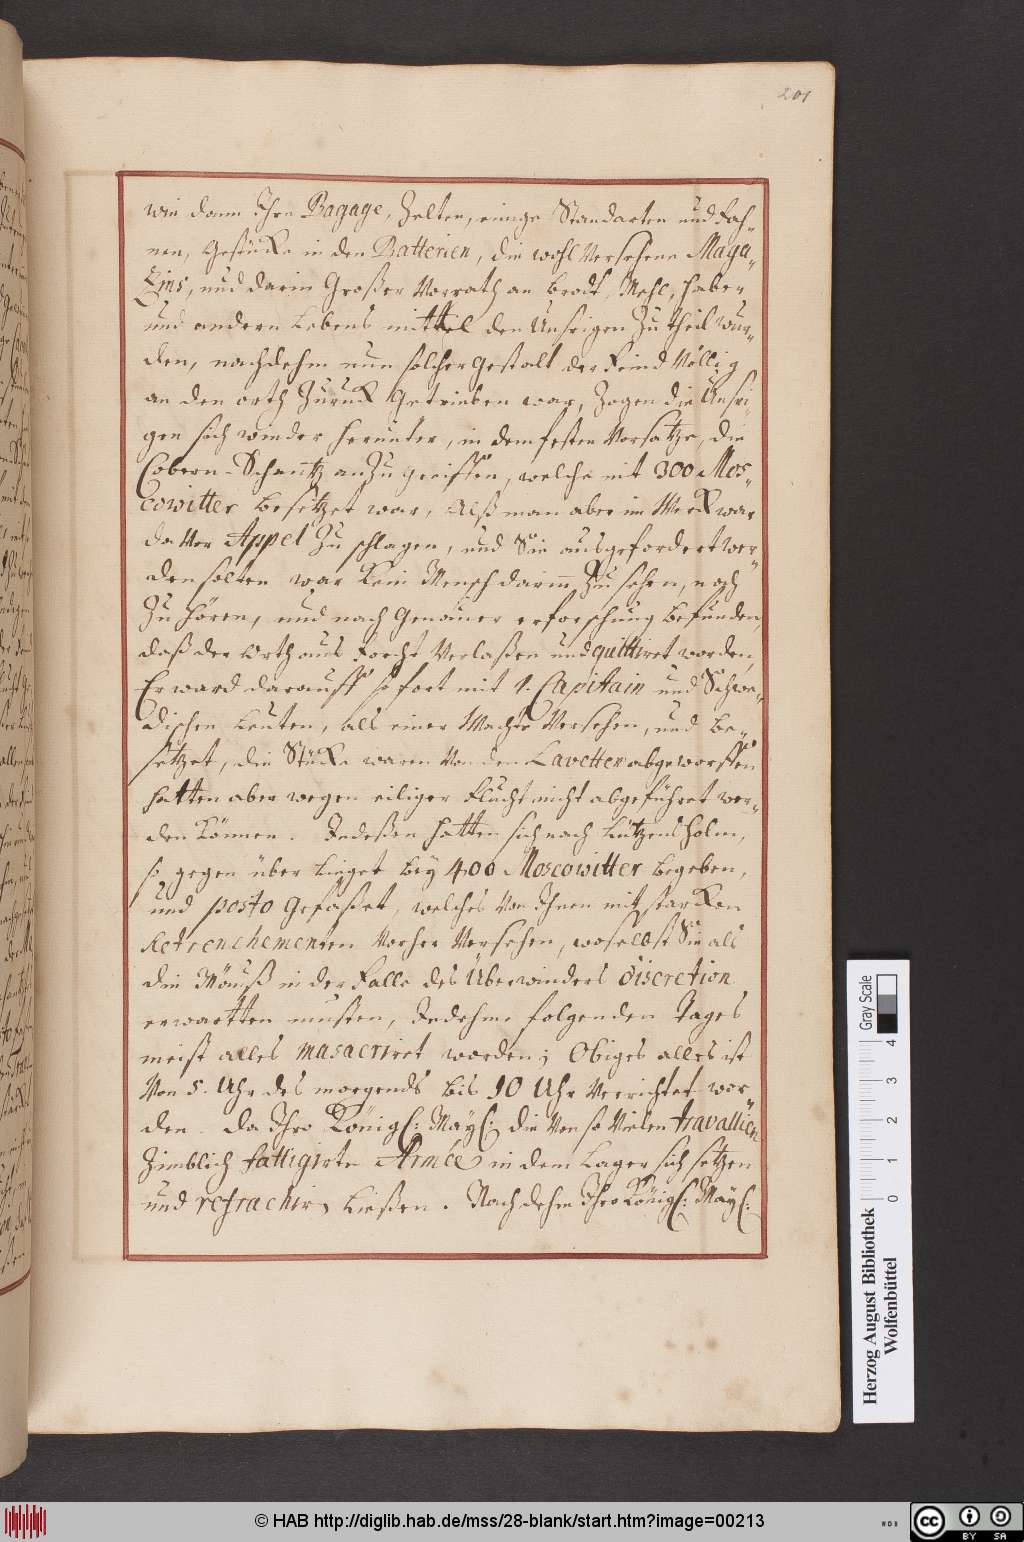 201
wie dann Ihre Bagage, Zelten, einige Standarten und Fah-
nen, Gestücke in den Batterien, die wohl Versehene Maga-
Zins, und darin Großer Vorrath an Brodt, Mehl, Haber
und andern Lebens mittel den Unsrigen Zu theil wur-
den, nachdehm nun solcher gestalt der Feind Völlig
an den orth Zurück Getrieben war, Zogen die Unsri-
gen sich wieder herunter, in dem festen Vorsatze, die
Cobern-Schantz anZugreiffen, welche mit 300 Mos-
cowitter Besetzet war, Alß man aber im Werck war
da Vor Appel Zu schlagen, und Sie ausgefordert wer-
den solten war Kein Mensch darinn Zu sehen, noch
Zu hören, und nach Genauer erforschung Befunden,
daß der Orth aus Forcht Verlaßen und quittiret worden,
Er ward darauff so fort mit 1. Capitain und Schwe-
dischen Leuten, als einer Wacht Versehen, und be-
setzet, die Stücke waren Von den Lavetten abgeworffen
hatten aber wegen eiliger Flucht nicht abgeführet wer-
den Können. Indeßen hatten sich nach Lützens holm,
so gegen über Lieget bey 400 Moscowitter begeben,
und posto Gefaßet, welches Von Ihnen mit starcken
Retrenchementen Vorher Versehen, woselbst Sie als
die Mäuß in der Falle des Überwinders discretion
erwartten musten, Indehme folgenden Tages
meist alles masacriret worden; Obiges alles ist
Von 5. Uhr des morgends bis 10 Uhr Verrichtet wor
den. Da Ihro Königl: Mayl: die Von so Vielen travallien
Zimblich fattigirte Armée in dem Lager sich setzen
und refrachirn Ließen. Nach dehm Ihro Königl: Mayl:
Gray Scale
0 1 2 3 4
Herzog August Bibliothek
Wolfenbüttel
© HAB http://diglib.hab.de/mss/28-blank/start.htm?image=00213
WDB
cc BY SA